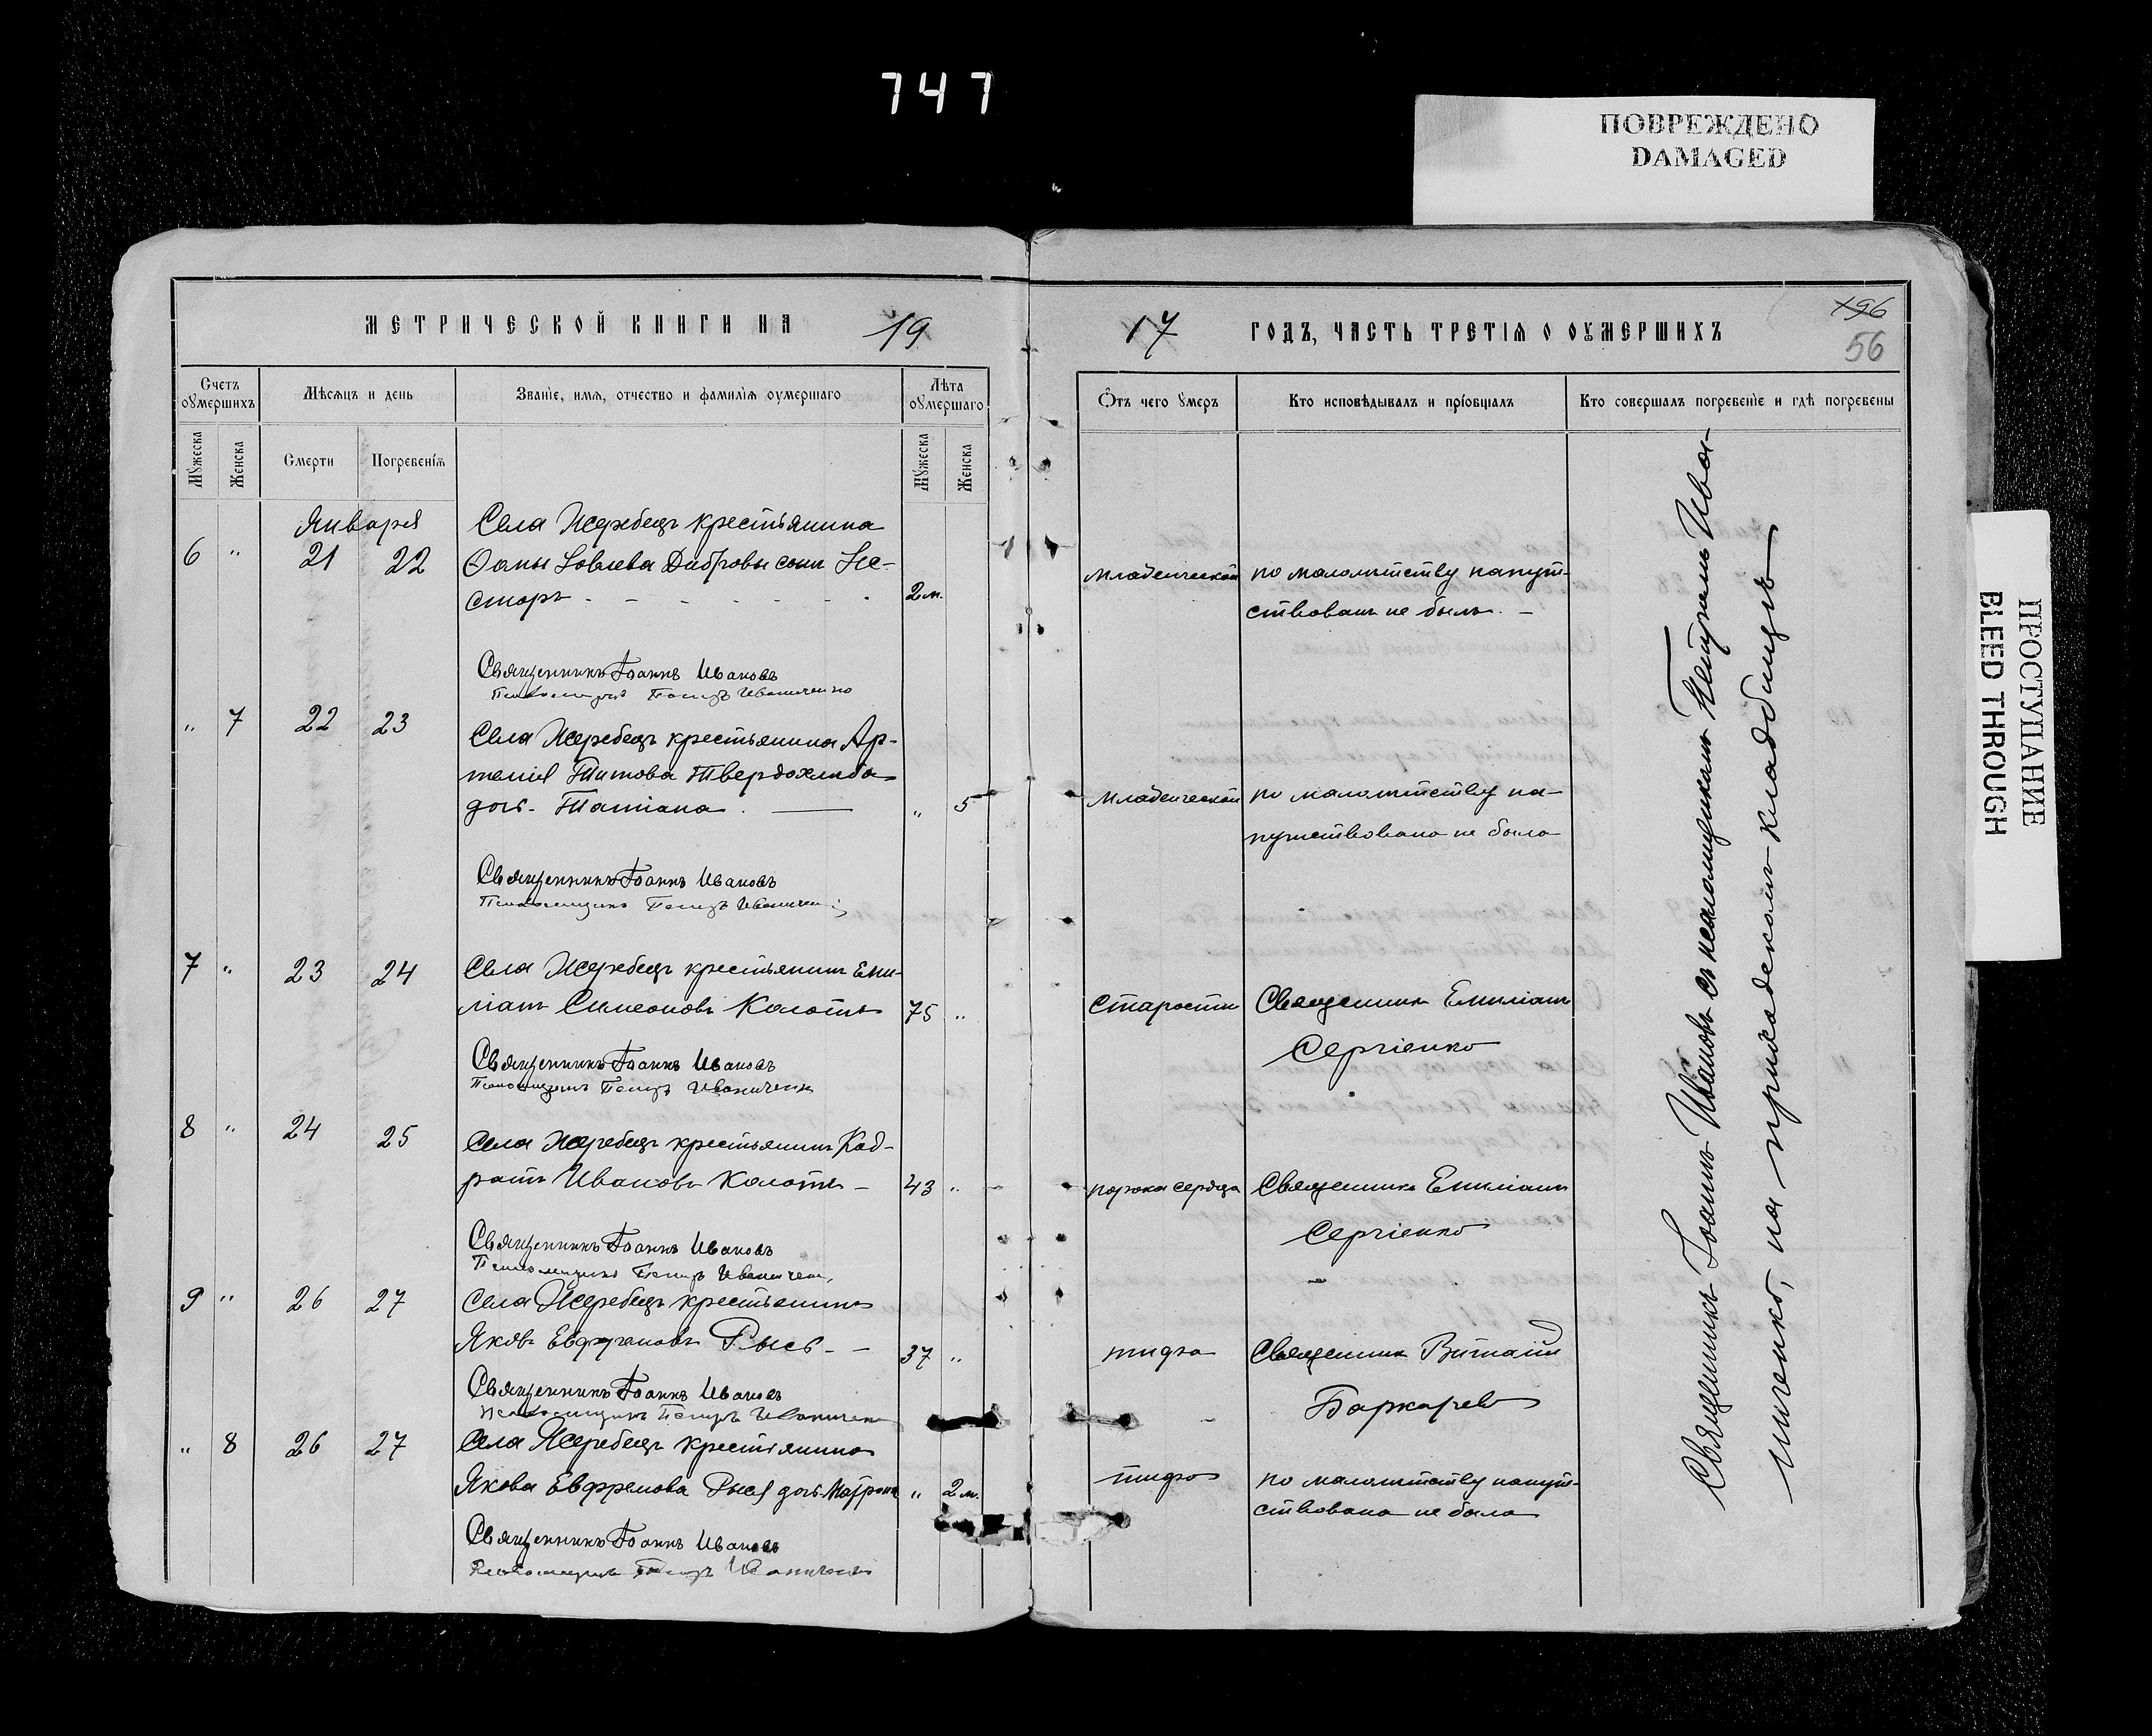 747
ПОВРЕЖДЕНО
DAMAGED
МЕТРИЧЕСКОЙ КНИГИ НА 19
17 ГОДЪ, ЧАСТЬ ТРЕТІЯ О ОУМЕРШИХЪ
196
56
Счетъ оумершихъ
Мѣсяцъ и день
Званіе, имя, отчество и фамилія оумершаго
Лѣта оумершаго
Мужеска
Женска
Смерти
Погребенія
Мужеска
Женска
Отъ чего умеръ
Кто исповѣдывалъ и пріобщалъ
Кто совершалъ погребеніе и гдѣ погребены
Января
Села Жеребецъ крестьянина
6 " 21 22 Ѳомы Іовлева Дибровы сынъ Не-
сторъ - - - - - - - 2 м.
младенческой
по малолѣтству напут-
ствованъ не былъ. -
Священникъ Іоаннъ Ивановъ
Псаломщикъ Петръ Иваниченко
" 7 22 23
Села Жеребецъ крестьянина Ар-
темія Титова Твердохлиба
дочь - Татіана. " 5
младенческой
по малолѣтству на-
путствована не была
Священникъ Іоаннъ Ивановъ
Псаломщикъ Петръ Иваничен
7 " 23 24 Села Жеребецъ крестьянинъ Еми-
ліанъ Симеоновъ Колотъ 75 "
старости
Священникъ Емиліанъ
Сергіенко
Священникъ Іоаннъ Ивановъ
Псаломщикъ Петръ Иваниченк
8 " 24 25 Села Жеребецъ крестьянинъ Код-
ратъ Ивановъ Колотъ - 43 "
порока сердца
Священникъ Емиліанъ
Сергіенко
Священникъ Іоаннъ Ивановъ
Псаломщикъ Петръ Иваничен
9 " 26 27 Села Жеребецъ крестьянинъ
Яковъ Евфремовъ Рысь - - 37 "
тифа
Священникъ Виталій
Баркаревъ
Священникъ Іоаннъ Ивановъ
Псаломщикъ Петръ Иваниченко
" 8 26 27 Села Жеребецъ крестьянина
Якова Евфремова Рыся дочь Матрона " 2 м.
тифа
по малолѣтству напут-
ствована не была
Священникъ Іоаннъ Ивановъ
Псаломщикъ Петръ Иваниченко
Священникъ Іоаннъ Ивановъ съ псаломщикомъ Петромъ Ива-
ниченко, на приходскомъ кладбищѣ
ПРОСТУПАНИЕ
BLEED THROUGH